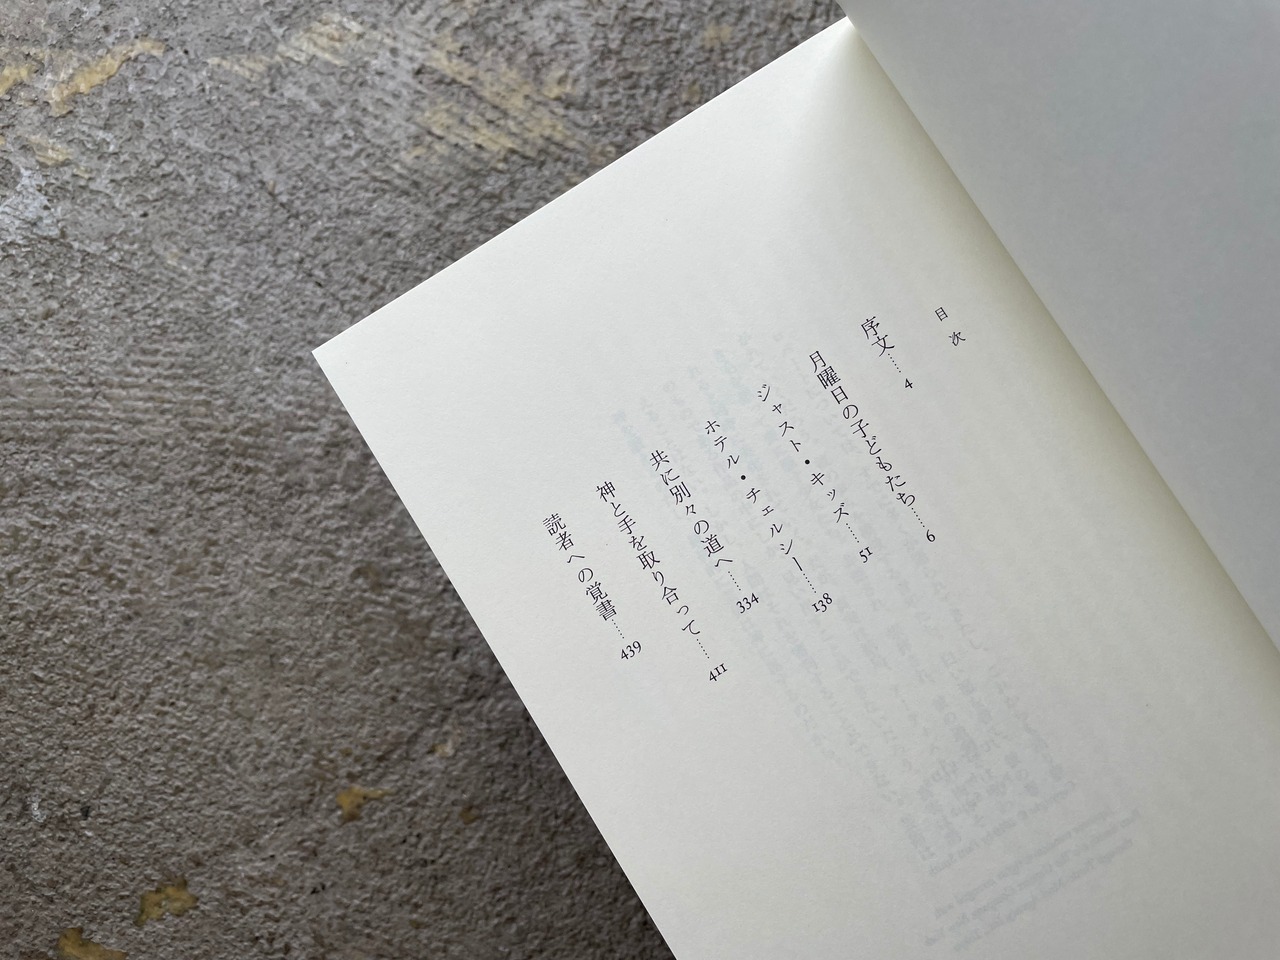 目次
序文……4
月曜日の子どもたち……6
ジャスト・キッズ……51
ホテル・チェルシー……138
共に別々の道へ……334
神と手を取り合って……411
読者への覚書……439